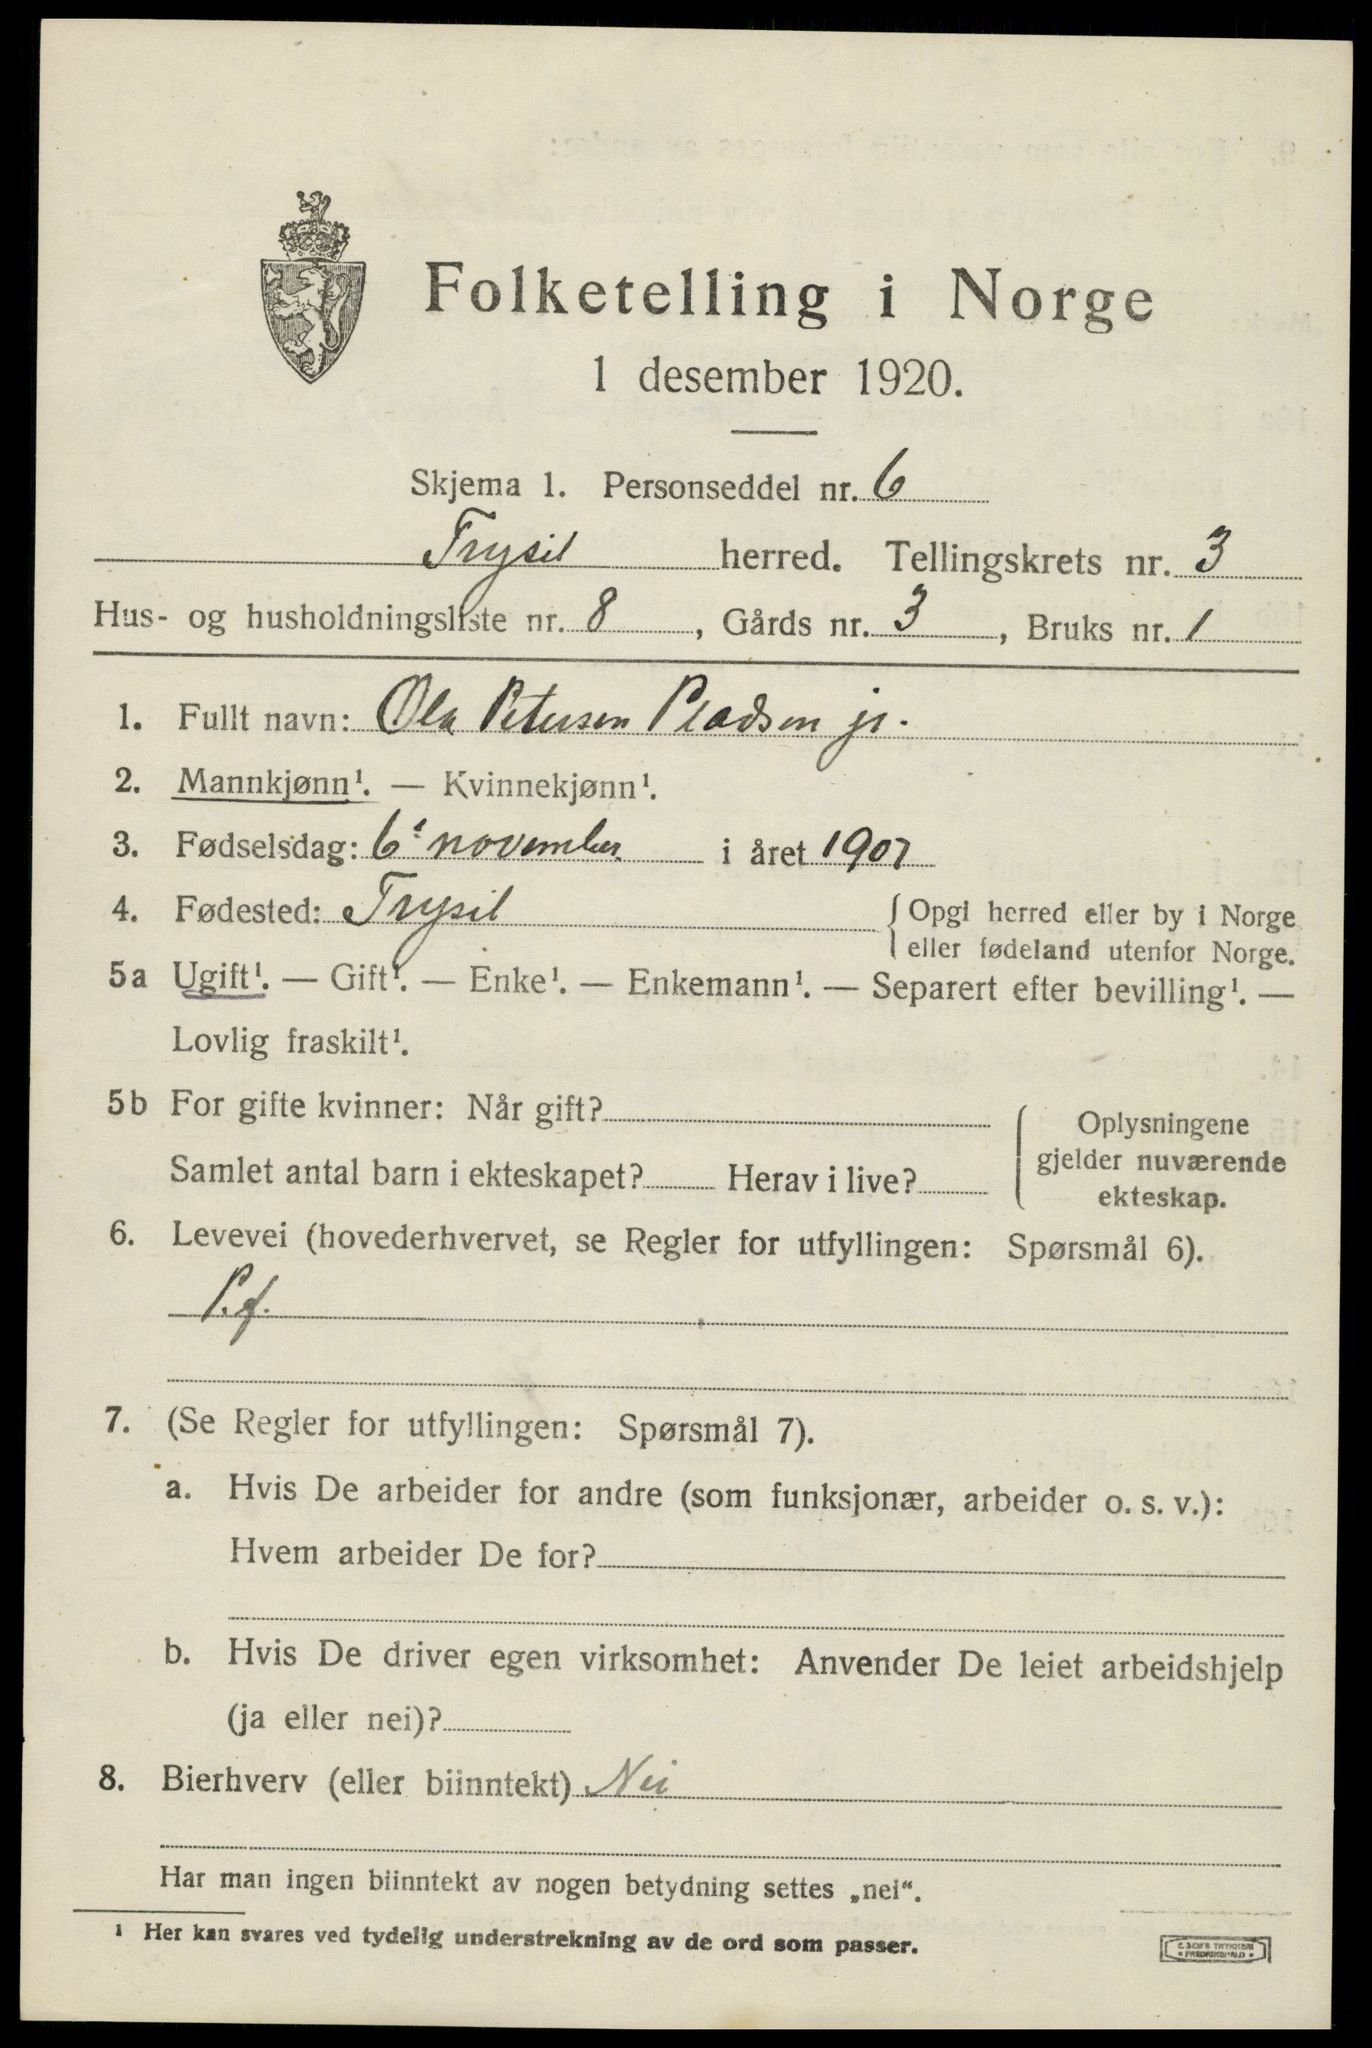 Folketelling i Norge
1 desember 1920.
Skjema 1. Personseddel nr. 6
Trysil herred. Tellingskrets nr. 3
Hus- og husholdningsliste nr. 8, Gårds nr. 3, Bruks nr. 1
1. Fullt navn: Ola Petersen Pladsen jr.
2. Mannkjønn¹. — Kvinnekjønn¹.
3. Fødselsdag: 6t november i året 1907
4. Fødested: Trysil {Opgi herred eller by i Norge
eller fødeland utenfor Norge.
5a Ugift¹. — Gift¹. — Enke¹. — Enkemann¹. — Separert efter bevilling¹. —
Lovlig fraskilt¹.
5b For gifte kvinner: Når gift?
Samlet antal barn i ekteskapet? Herav i live?
{Oplysningene
gjelder nuværende
ekteskap.
6. Levevei (hovederhvervet, se Regler for utfyllingen: Spørsmål 6).
P.f.
7. (Se Regler for utfyllingen: Spørsmål 7).
a. Hvis De arbeider for andre (som funksjonær, arbeider o. s. v.):
Hvem arbeider De for?
b. Hvis De driver egen virksomhet: Anvender De leiet arbeidshjelp
(ja eller nei)?
8. Bierhverv (eller biinntekt) Nei
Har man ingen biinntekt av nogen betydning settes „nei“.
¹ Her kan svares ved tydelig understrekning av de ord som passer.